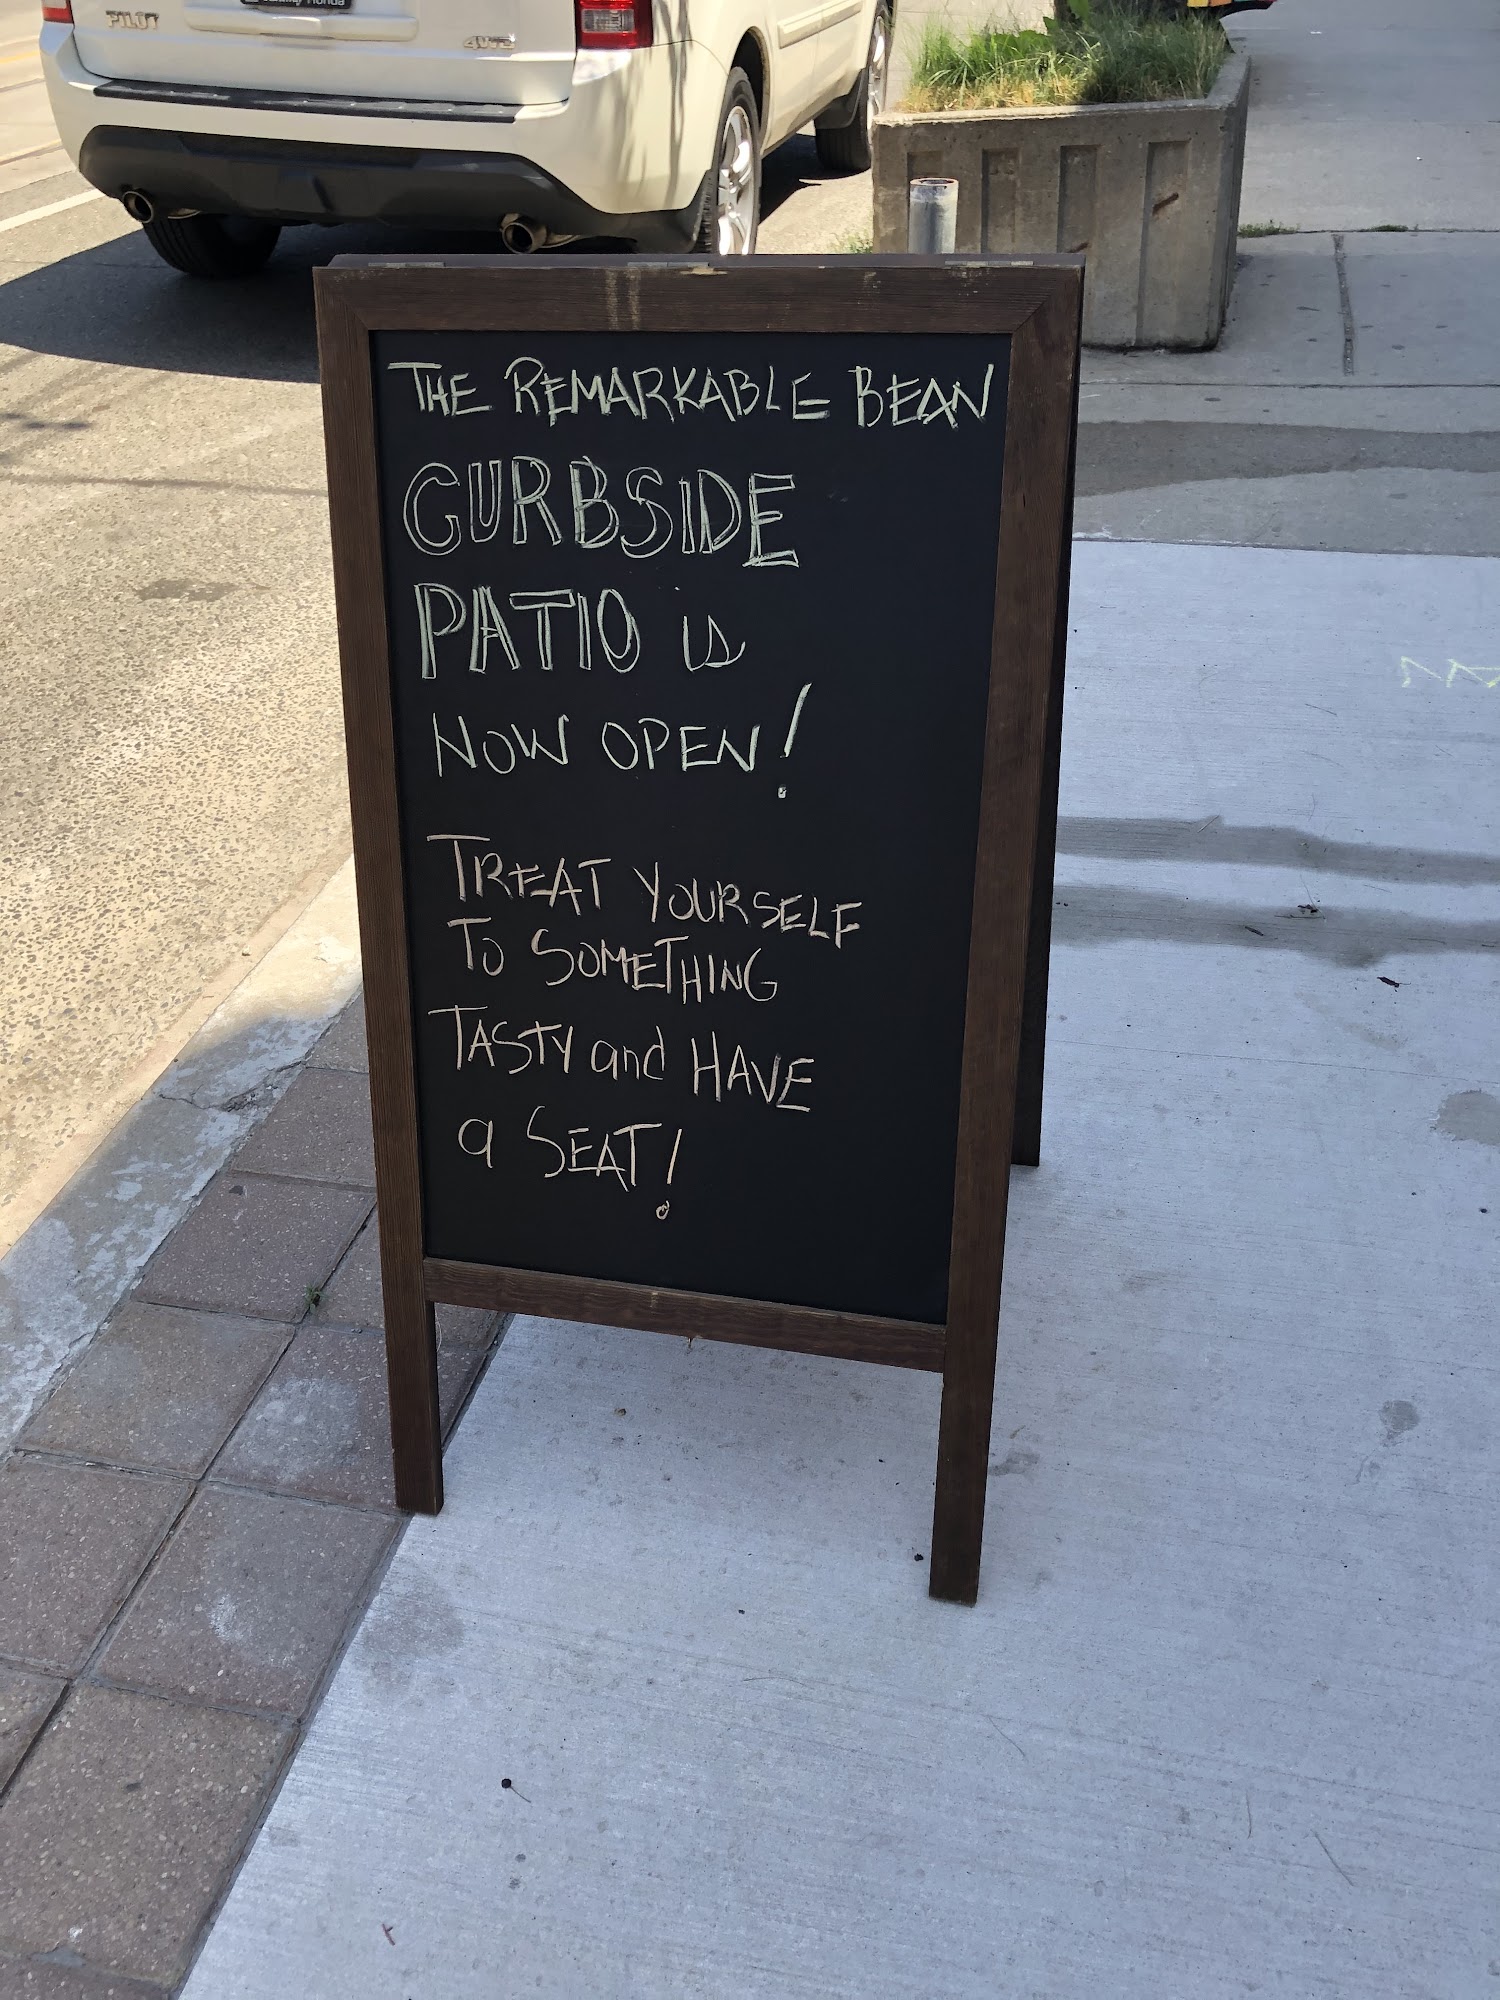 PILOT
4WD
THE REMARKABLE BEAN
CURBSIDE
PATIO is
NOW OPEN!
TREAT YOURSELF
TO SOMETHING
TASTY and HAVE
a SEAT!